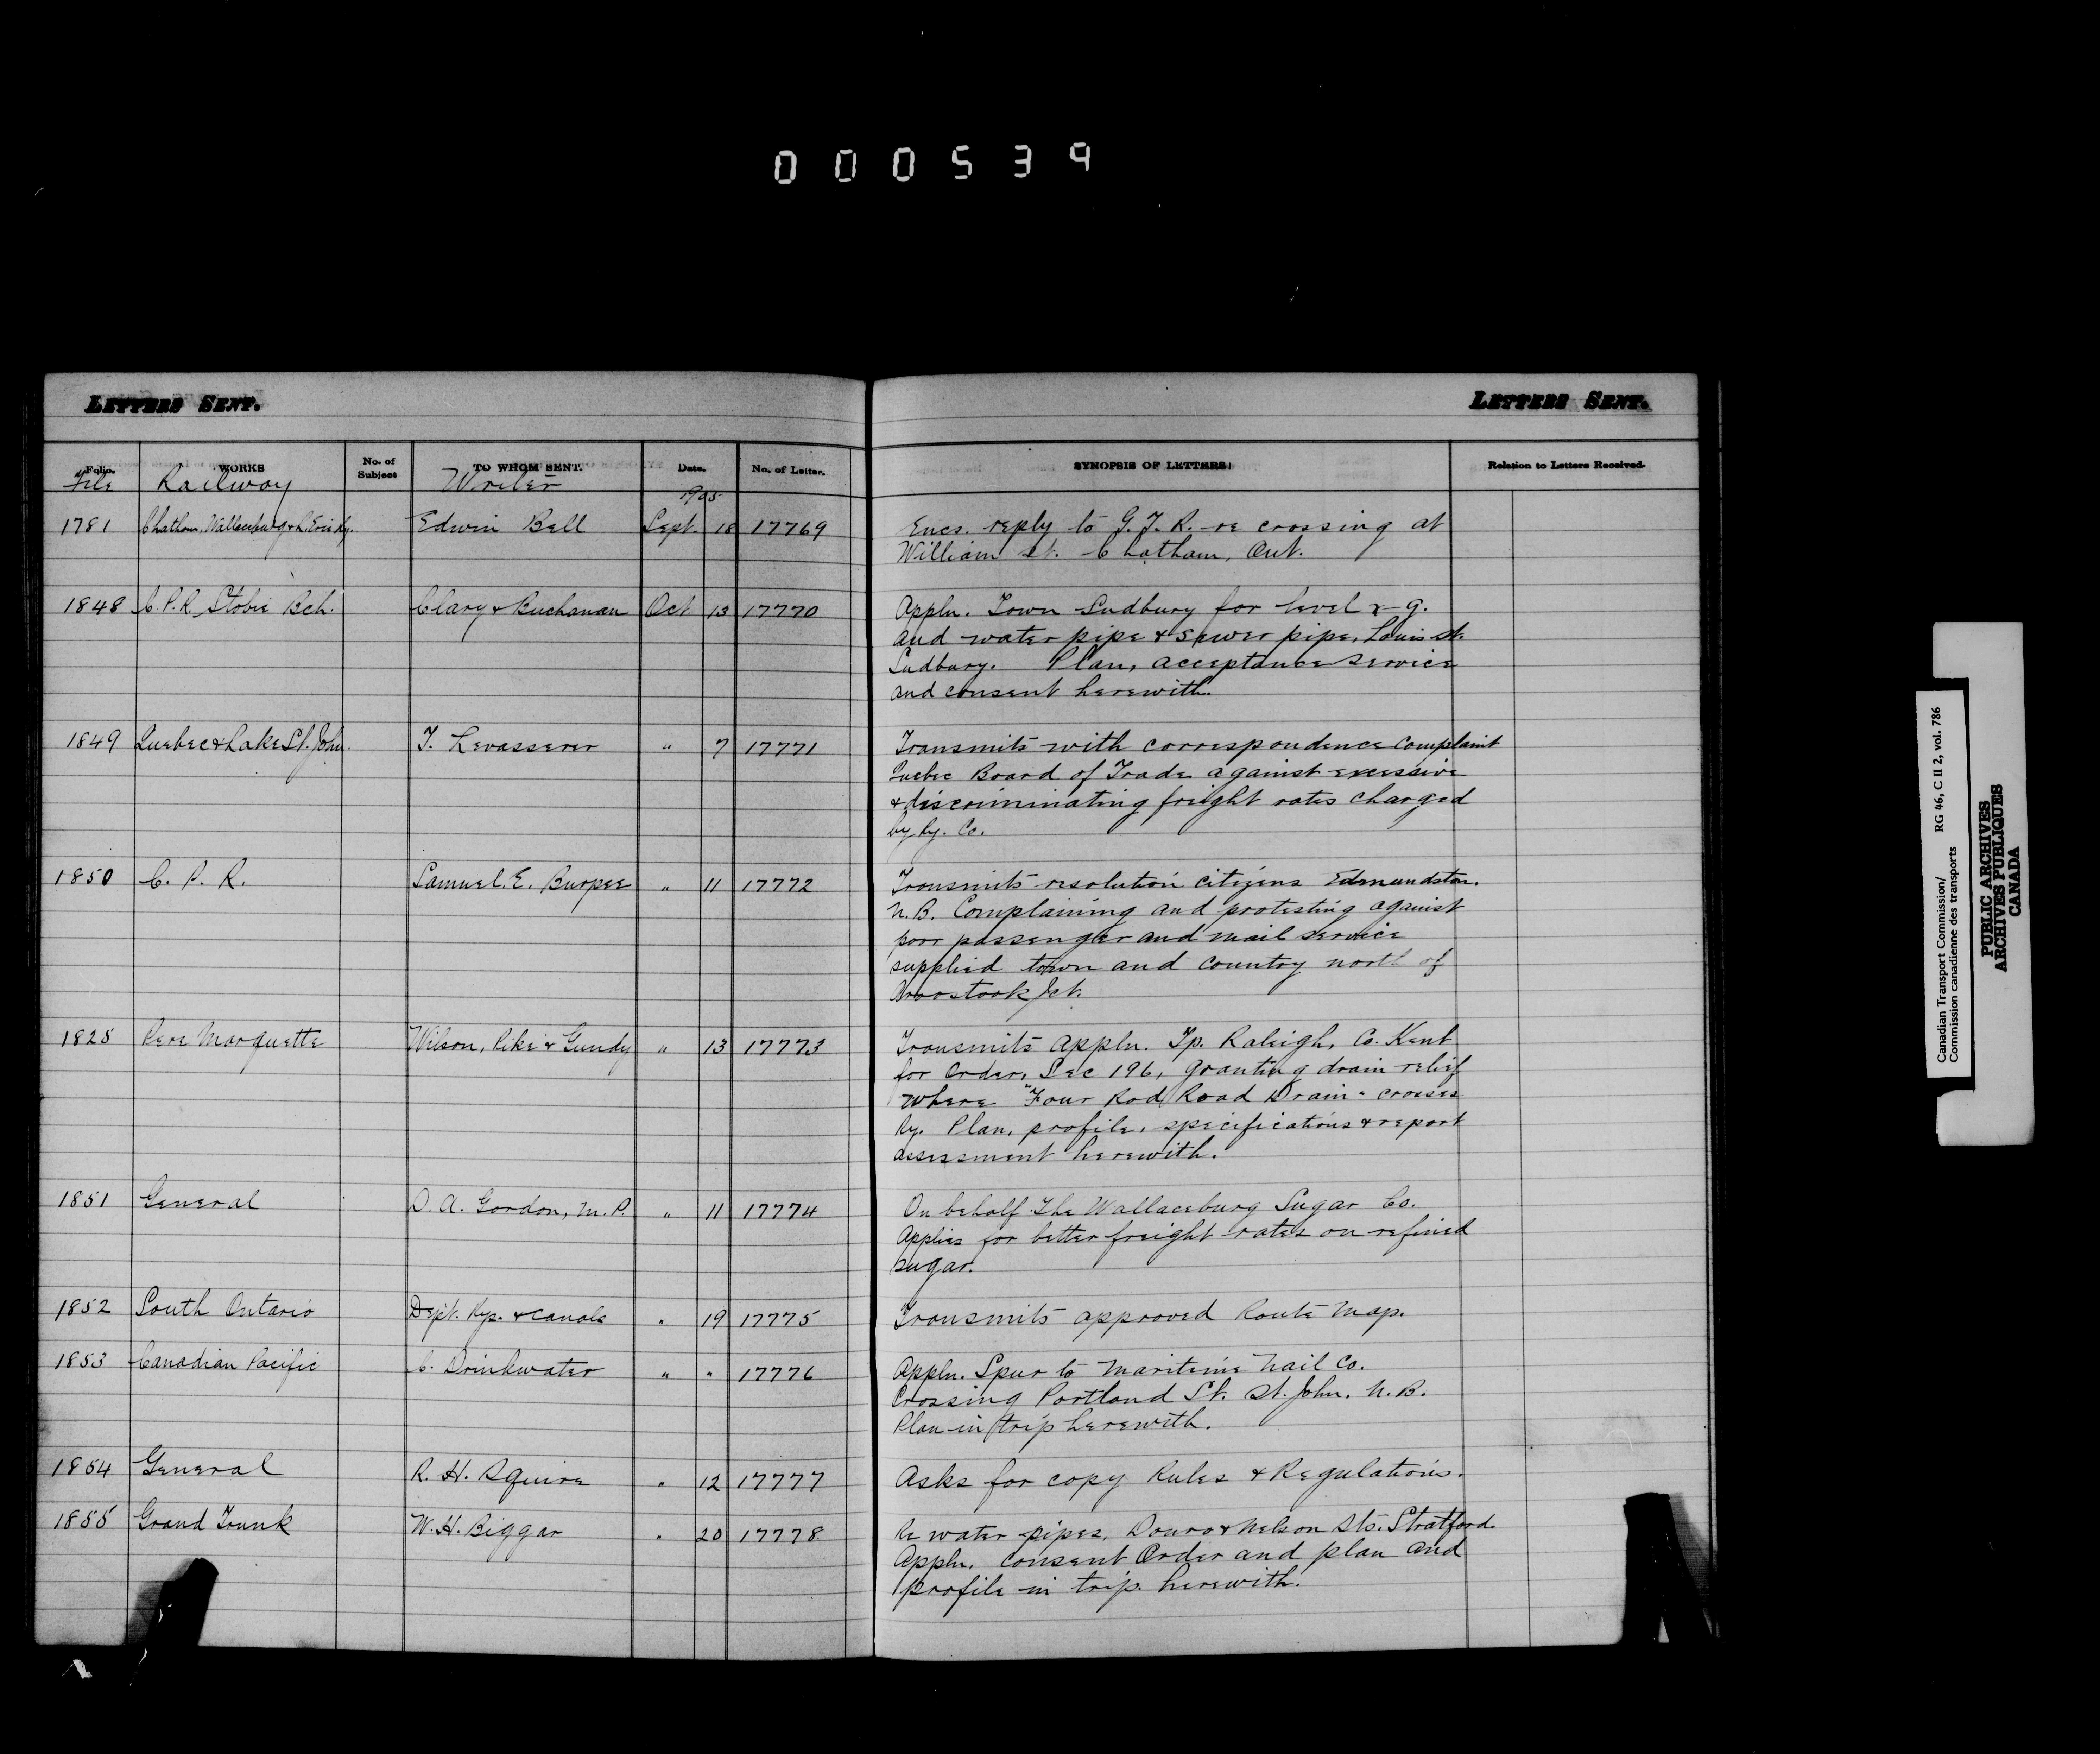 000539
LETTERS SENT.
LETTERS SENT.
Folio. WORKS No. of Subject TO WHOM SENT. Date. No. of Letter. SYNOPSIS OF LETTERS. Relation to Letters Received.
File Railway Writer
1905
1781 Chatham, Wallaceburg & L. Erie Ry. Edwin Bell Sept. 18 17769 Encs. reply to G.T.R. re crossing at
William St. Chatham, Ont.
1848 C.P.R. Stobie Bch. Clary & Buchanan Oct 13 17770 Appln. Town Sudbury for level x-g.
and water pipe & sewer pipe, Louis St.
Sudbury. Plan, acceptance service
and consent herewith.
1849 Quebec & Lake St. John. T. Levasseur " 7 17771 Transmits with correspondence complaint
Quebec Board of Trade against excessive
& discriminating freight rates charged
by Ry. Co.
1850 C. P. R. Samuel. E. Burpee " 11 17772 Transmits resolution citizens Edmundston.
N.B. Complaining and protesting against
poor passenger and mail service
supplied town and country north of
Aroostook Jct.
1825 Pere Marquette Wilson, Pike & Gundy " 13 17773 Transmits appln. Tp. Raleigh, Co. Kent
for Order, Sec 196, granting drain relief
where "Four Rod Road Drain" crosses
Ry. Plan, profile, specifications & report
assessment herewith.
1851 General D. A. Gordon, M.P. " 11 17774 On behalf The Wallaceburg Sugar Co.
Applies for better freight rates on refined
sugar.
1852 South Ontario Dept. Rys. & Canals " 19 17775 Transmits approved Route Map.
1853 Canadian Pacific C. Drinkwater " " 17776 Appln. Spur to Maritime Nail Co.
Crossing Portland St. St. John. N.B.
Plan in trip herewith.
1854 General R. H. Squire " 12 17777 Asks for copy Rules & Regulations.
1855 Grand Trunk W. H. Biggar " 20 17778 Re water pipes, Douro & Nelson Sts. Stratford.
Appln. consent Order and plan and
profile in trip. herewith.
Canadian Transport Commission/ RG 46, C II 2, vol. 786
Commission canadienne des transports
PUBLIC ARCHIVES
ARCHIVES PUBLIQUES
CANADA